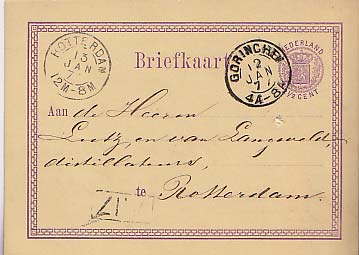 ROTTERDAM
13
JAN
77
12M-8M
Briefkaart
GORINCHEM
12
JAN
77
4A-8A
NEDERLAND
2½ CENT
Aan de Heeren
Lutz en van Langeveld,
distillateurs,
te Rotterdam.